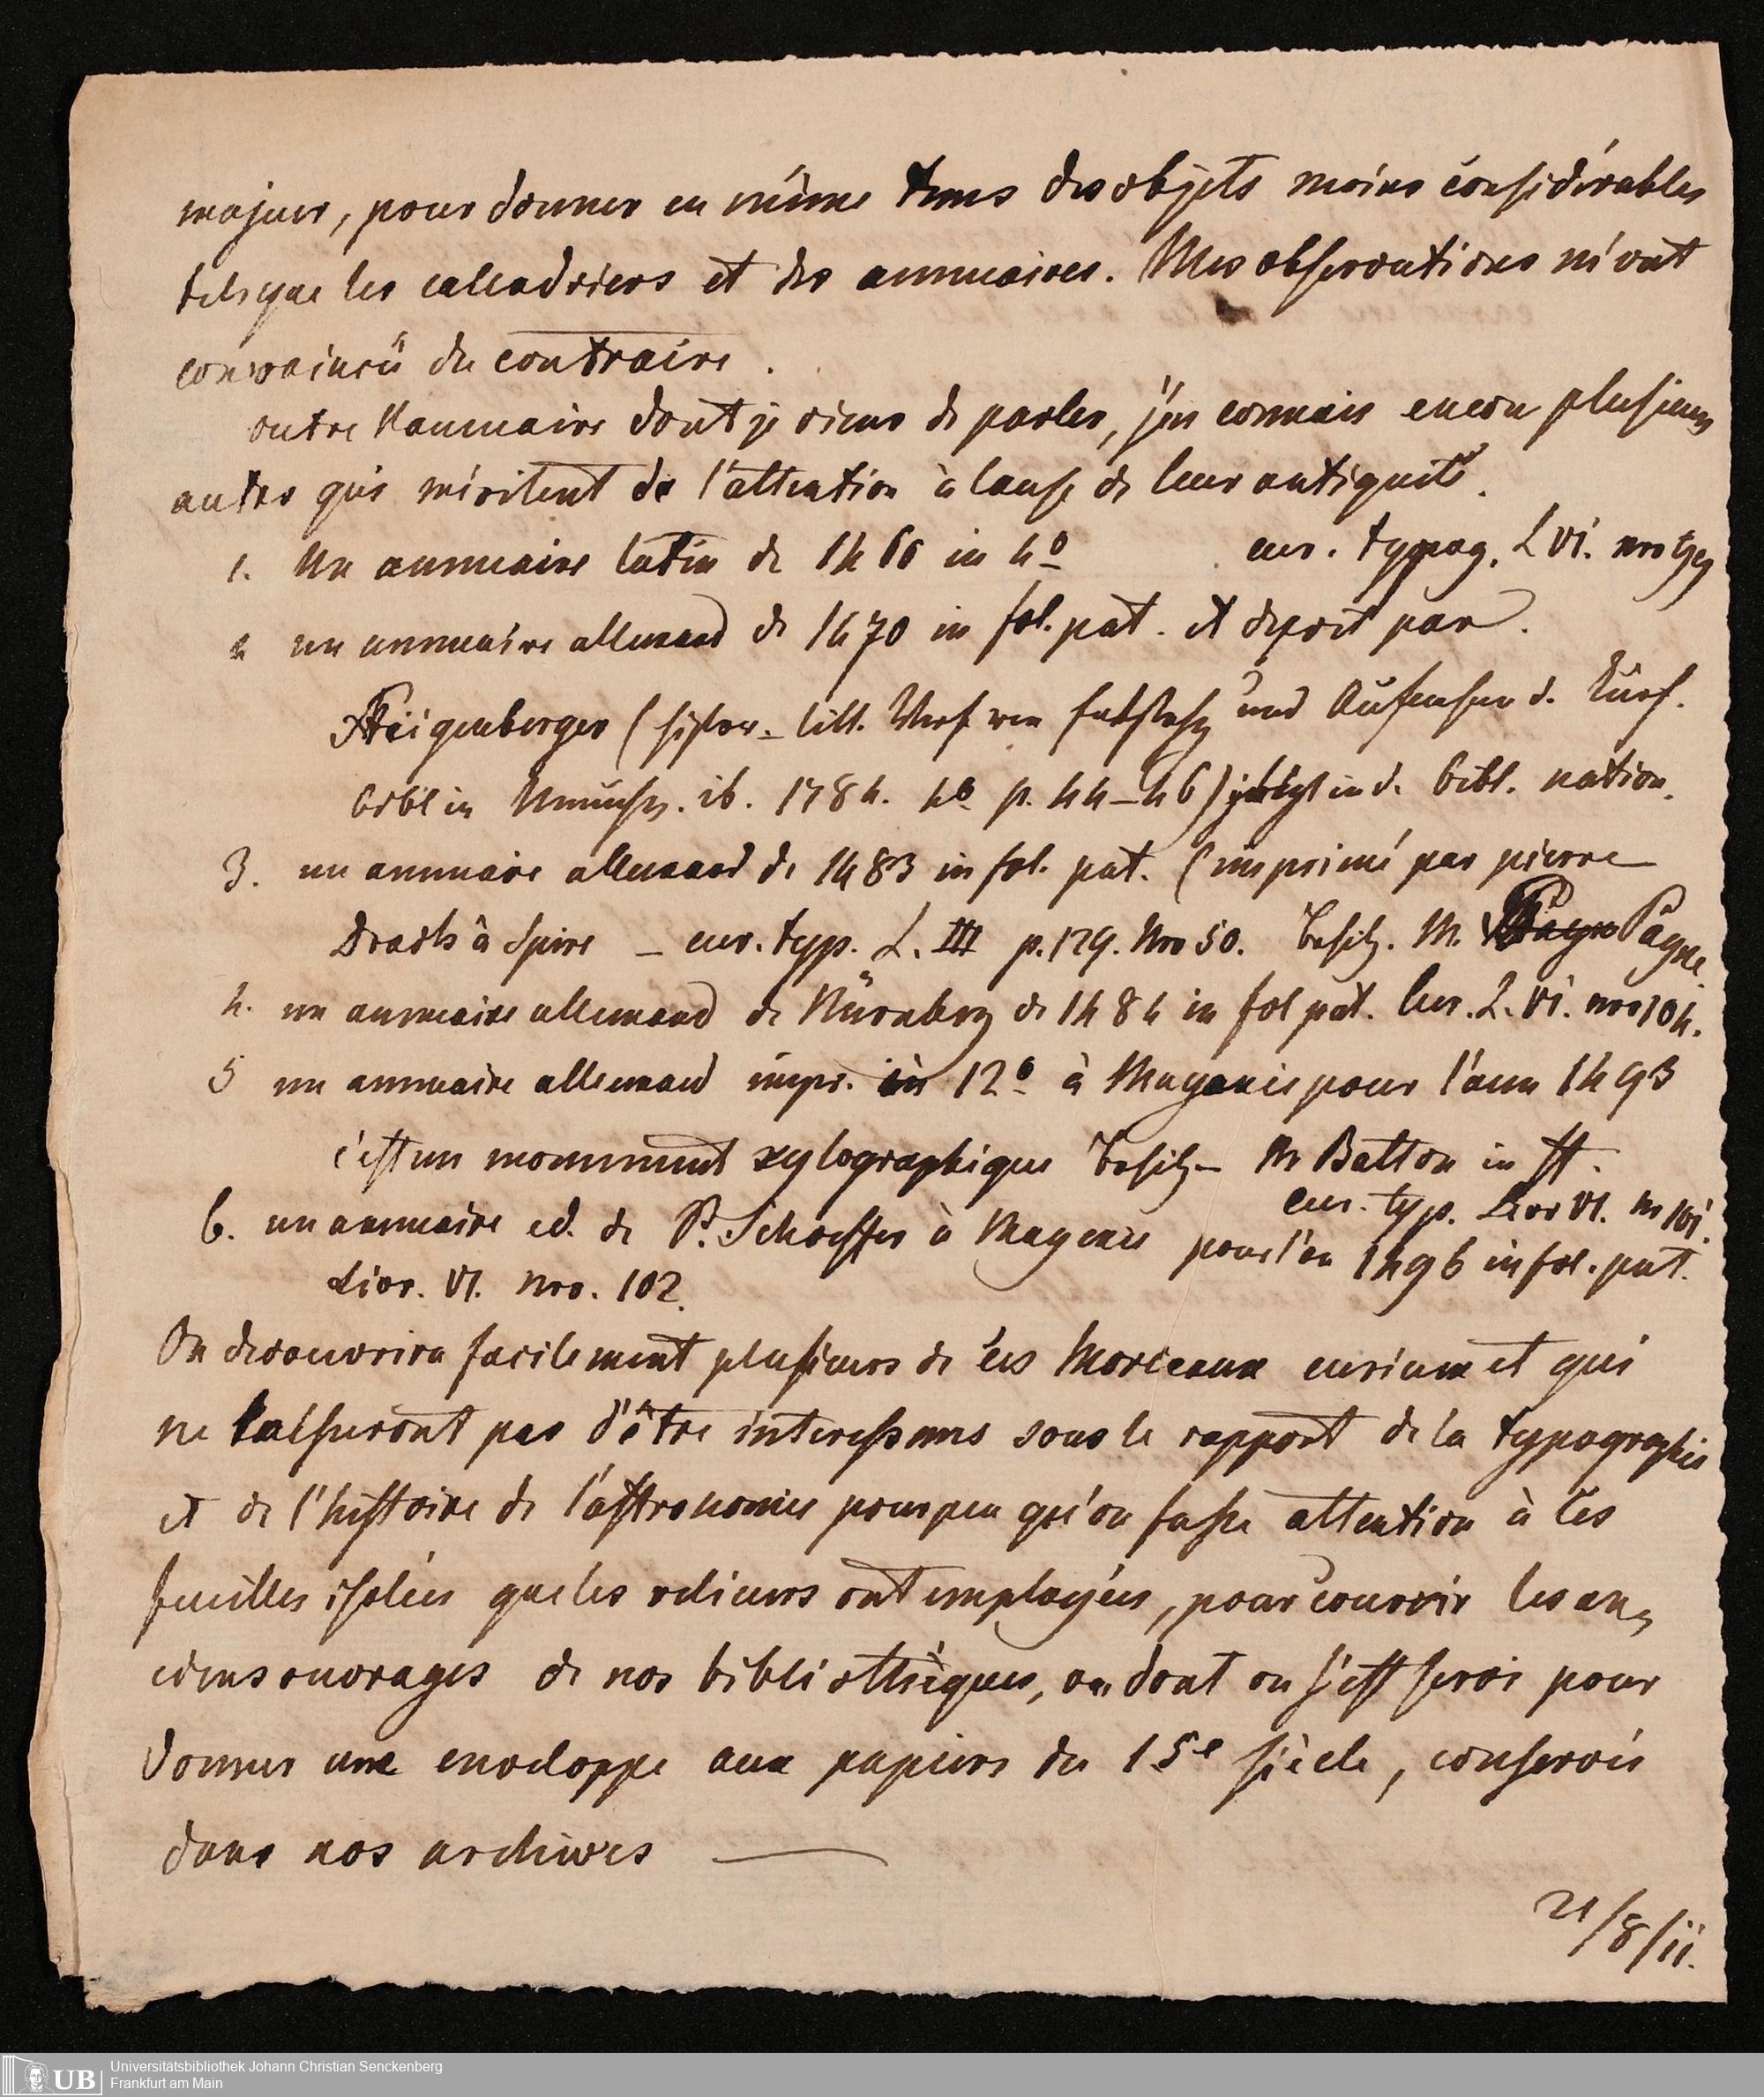 majeur, pour donner en même tems des objets moins considérables
tels que les calendriers et des annuaires. Mes observations m'ont
convaincú du contraire.
outre l'annuaire dont je viens de parler, j'en connais encore plusieurs
autres qui méritent de l'attention à cause de leur antiquité.
1. Un annuaire latin de 1460 in 4º cur. typog. L VI. nro
2 un annuaire allemand de 1470 in fol. pat. et decrit par.
Steigenberger (histor. litt. Vers. von Entstehg und Aufnahm d. Kurf.
Bibl in München. ib. 1784. 4º p. 44-46) jetzt in d. bibl. nation.
3. un annuaire allemand de 1483 in fol. pat. (imprimé par pierre
Drach à Spire – cur. typ. L. III p. 129. Nro 50. Besitz. M. Payne
4. un annuaire allemand de Nürnberg de 1484 in fol pat. Cur. L. VI. nro 104.
5 un annuaire allemand impr. in 12º à Mayence pour l'ann 1493
c'est un monument xylographique Besitz – Mr Batton in ff.
cur. typ. Livr VI. Nr 101.
6. un annuaire ed. de P. Schoeffer à Mayence pour l'an 1496 in fol. pat.
Livr. VI. Nro. 102.
On decouvrira facilement plusieurs de ces Morceaux curieux et qui
ne laisseront pas d'être interessans sous le rapport de la typographie
et de l'histoire de l'astronomie pourpeu qu'on fasse attention à ces
feuilles isolées que les relieurs ont employées, pour couvrir les an,
ciens ouvrages de nos bibliothèques, ou dont on s'est servi pour
donner une enveloppe aux papiers du 15e siècle, conservés
dans nos archives —
21/8/11.
UB
Universitätsbibliothek Johann Christian Senckenberg
Frankfurt am Main